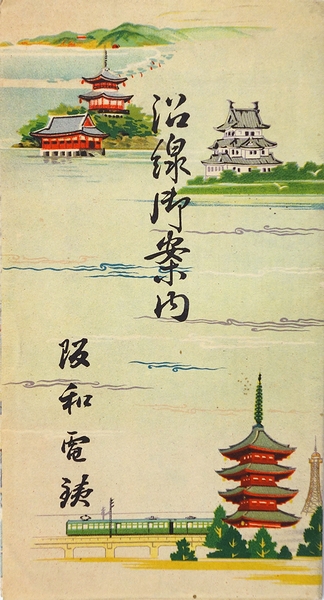 沿線御案内
阪和電鉄